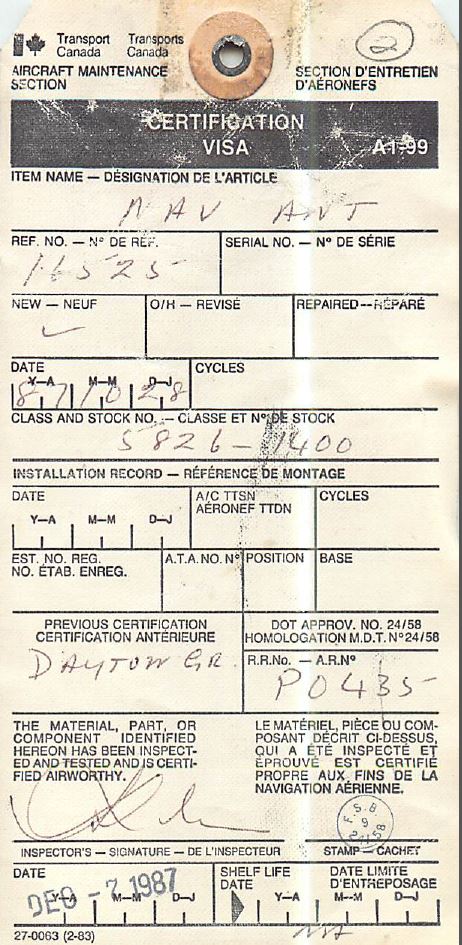 Transport Canada Transports Canada 2
AIRCRAFT MAINTENANCE SECTION SECTION D'ENTRETIEN D'AÉRONEFS
CERTIFICATION
VISA A1-99
ITEM NAME — DÉSIGNATION DE L'ARTICLE
NAV ANT
REF. NO. — Nº DE RÉF. SERIAL NO. — Nº DE SÉRIE
16525
NEW — NEUF O/H — REVISÉ REPAIRED — RÉPARÉ
✓
DATE CYCLES
Y—A M—M D—J
87 10 28
CLASS AND STOCK NO. — CLASSE ET Nº DE STOCK
5826-1400
INSTALLATION RECORD — RÉFÉRENCE DE MONTAGE
DATE A/C TTSN CYCLES
AÉRONEF TTDN
Y—A M—M D—J
EST. NO. REG. A.T.A. NO. Nº POSITION BASE
NO. ÉTAB. ENREG.
PREVIOUS CERTIFICATION DOT APPROV. NO. 24/58
CERTIFICATION ANTÉRIEURE HOMOLOGATION M.D.T. Nº 24/58
DAYTON GR. R.R.No. — A.R.Nº
P0435
THE MATERIAL, PART, OR
COMPONENT IDENTIFIED
HEREON HAS BEEN INSPECT-
ED AND TESTED AND IS CERTI-
FIED AIRWORTHY.
LE MATÉRIEL, PIÈCE OU COM-
POSANT DÉCRIT CI-DESSUS,
QUI A ÉTÉ INSPECTÉ ET
ÉPROUVÉ EST CERTIFIÉ
PROPRE AUX FINS DE LA
NAVIGATION AÉRIENNE.
F.S.B
9
24/58
INSPECTOR'S — SIGNATURE — DE L'INSPECTEUR STAMP — CACHET
DATE SHELF LIFE DATE DATE LIMITE D'ENTREPOSAGE
DEC -7 1987
Y—A M—M D—J Y—A M—M D—J
27-0063 (2-83) NA